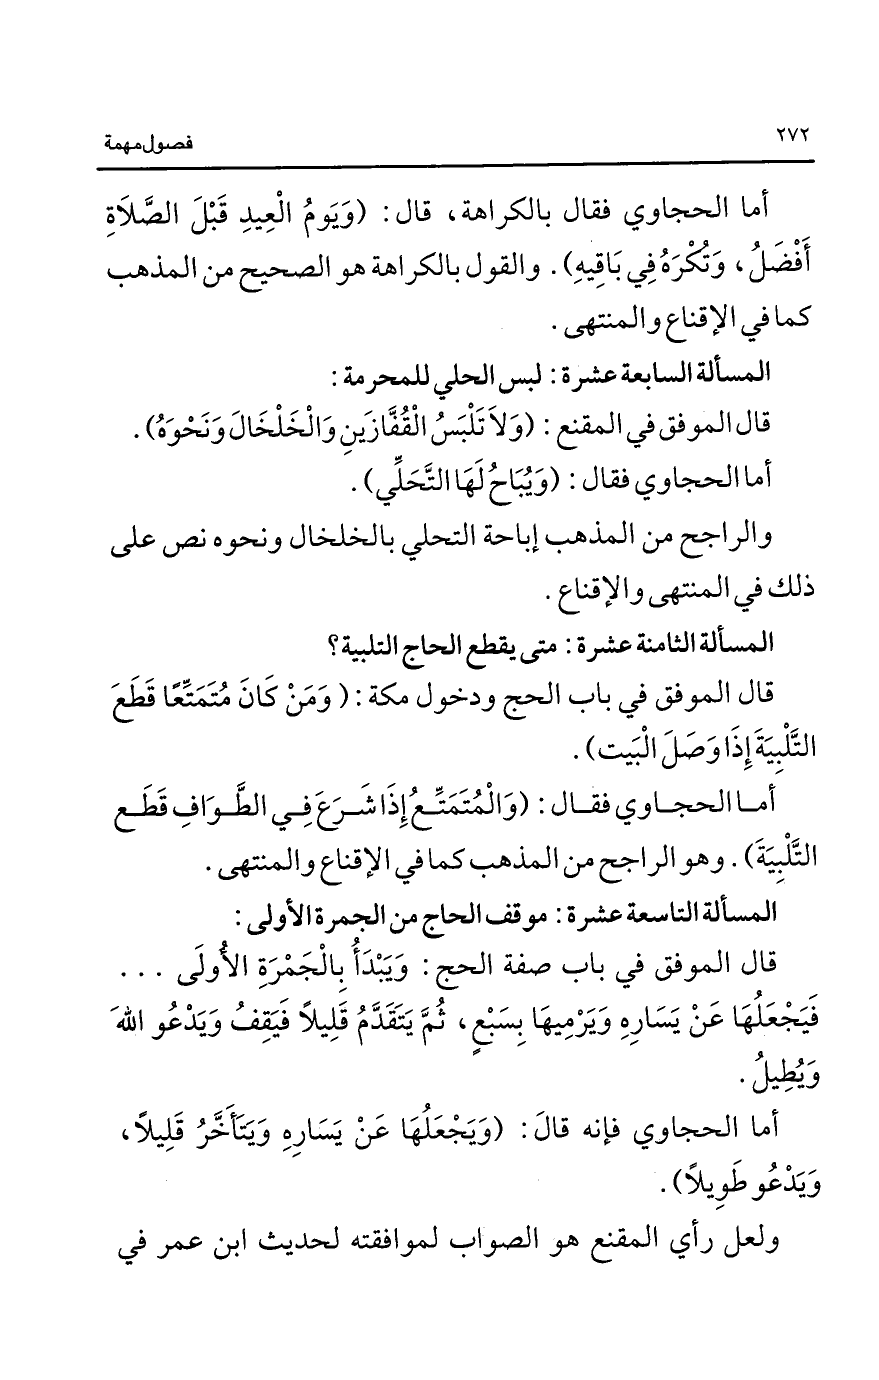 ٢٧٢
فصول مهمة
أما الحجاوي فقال بالكراهة، قال: (وَيَومُ الْعِيدِ قَبْلَ الصَّلَاةِ
أَفْضَلُ، وَتُكْرَهُ فِي بَاقِيهِ). والقول بالكراهة هو الصحيح من المذهب
كما في الإقناع والمنتهى.
المسألة السابعة عشرة: لبس الحلي للمحرمة:
قال الموفق في المقنع: (وَلاَ تَلْبَسُ الْقُفَّازَينِ وَالْخَلْخَالَ وَنَحْوَهُ).
أما الحجاوي فقال: (وَيُبَاحُ لَهَا التَّحَلِّي).
والراجح من المذهب إباحة التحلي بالخلخال ونحوه نص على
ذلك في المنتهى والإقناع.
المسألة الثامنة عشرة: متى يقطع الحاج التلبية؟
قال الموفق في باب الحج ودخول مكة: (وَمَنْ كَانَ مُتَمَتِّعًا قَطَعَ
التَّلْبِيَةَ إِذَا وَصَلَ الْبَيت).
أما الحجاوي فقال: (وَالْمُتَمَتِّعُ إِذَا شَرَعَ فِي الطَّوَافِ قَطَع
التَّلْبِيَةَ). وهو الراجح من المذهب كما في الإقناع والمنتهى.
المسألة التاسعة عشرة: موقف الحاج من الجمرة الأولى:
قال الموفق في باب صفة الحج: وَيَبْدَأُ بِالْجَمْرَةِ الأُولَى ...
فَيَجْعَلُهَا عَنْ يَسَارِهِ وَيَرْمِيهَا بِسَبْعٍ، ثُمَّ يَتَقَدَّمُ قَلِيلاً فَيَقِفُ وَيَدْعُو اللهَ
وَيُطِيلُ.
أما الحجاوي فإنه قالَ: (وَيَجْعَلُهَا عَنْ يَسَارِهِ وَيَتَأَخَّرُ قَلِيلاً،
وَيَدْعُو طَوِيلاً).
ولعل رأي المقنع هو الصواب لموافقته لحديث ابن عمر في